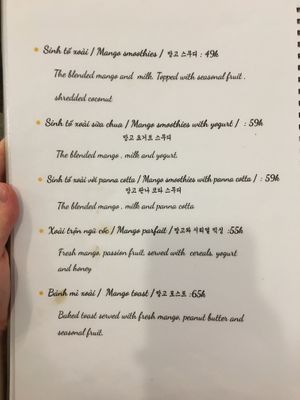 Sinh tố xoài / Mango smoothies / 망고 스무디 : 49k
The blended mango and milk. Topped with seasonal fruit ,
shredded coconut
Sinh tố xoài sữa chua / Mango smoothies with yogurt / : 59k
망고 요거트 스무디
The blended mango , milk and yogurt
Sinh tố xoài với panna cotta / Mango smoothies with panna cotta / : 59k
망고 판나 코타 스무디
The blended mango , milk and panna cotta
Xoài trộn ngũ cốc / Mango parfait / 망고와 시리얼 믹싱 :55k
Fresh mango, passion fruit, served with cereals, yogurt
and honey
Bánh mì xoài / Mango toast / 망고 토스트 :65k
Baked toast served with fresh mango, peanut butter and
seasonal fruit.